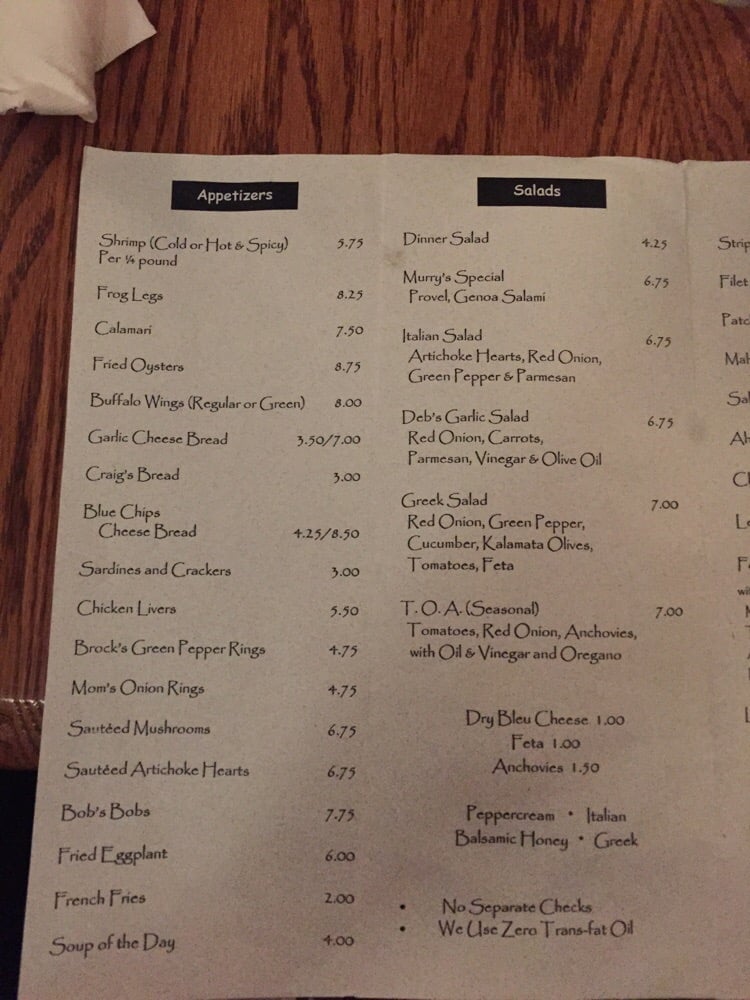 Appetizers
Shrimp (Cold or Hot & Spicy) 5.75
Per ¼ pound
Frog Legs 8.25
Calamari 7.50
Fried Oysters 8.75
Buffalo Wings (Regular or Green) 8.00
Garlic Cheese Bread 3.50/7.00
Craig's Bread 3.00
Blue Chips
Cheese Bread 4.25/8.50
Sardines and Crackers 3.00
Chicken Livers 5.50
Brock's Green Pepper Rings 4.75
Mom's Onion Rings 4.75
Sautéed Mushrooms 6.75
Sautéed Artichoke Hearts 6.75
Bob's Bobs 7.75
Fried Eggplant 6.00
French Fries 2.00
Soup of the Day 4.00
Salads
Dinner Salad 4.25
Murry's Special 6.75
Provel, Genoa Salami
Italian Salad 6.75
Artichoke Hearts, Red Onion,
Green Pepper & Parmesan
Deb's Garlic Salad 6.75
Red Onion, Carrots,
Parmesan, Vinegar & Olive Oil
Greek Salad 7.00
Red Onion, Green Pepper,
Cucumber, Kalamata Olives,
Tomatoes, Feta
T. O. A. (Seasonal) 7.00
Tomatoes, Red Onion, Anchovies,
with Oil & Vinegar and Oregano
Dry Bleu Cheese 1.00
Feta 1.00
Anchovies 1.50
Peppercream • Italian
Balsamic Honey • Greek
• No Separate Checks
• We Use Zero Trans-fat Oil
Strip
Filet